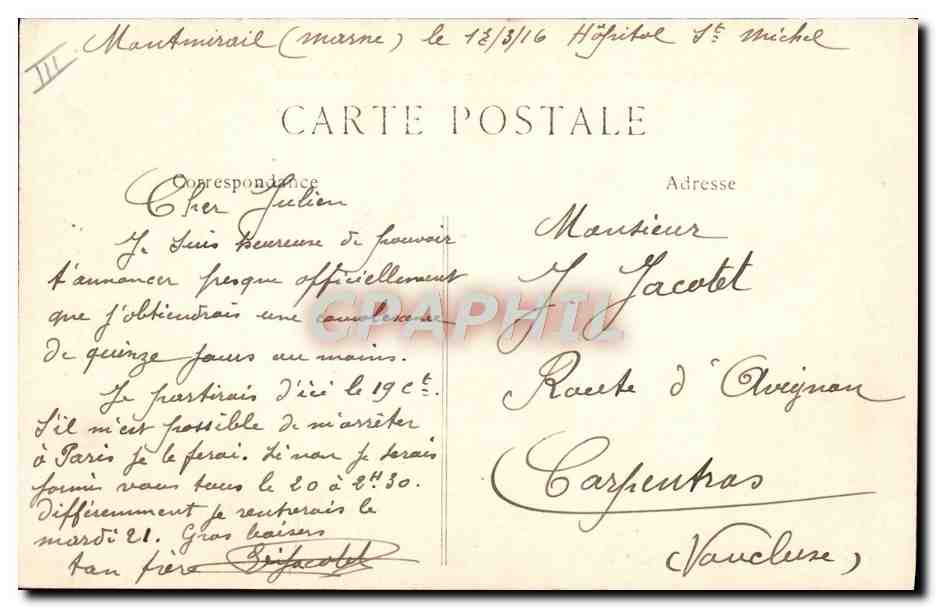 III
Montmirail (Marne) le 12/3/16 Hôpital St Michel
CARTE POSTALE
Correspondance
Adresse
Cher Julien
Je suis heureuse de pouvoir
t'annoncer presque officiellement
que j'obtiendrais une convalescence
de quinze jours au moins.
Je partirais d'ici le 19 Ct.
S'il m'est possible de m'arrêter
à Paris je le ferai. Si non je serais
parmis vous tous le 20 à 2H30.
Différemment je rentrerais le
mardi 21. Gros baisers
ton frère Jacotet
Monsieur
J Jacotet
Route d'Avignon
Carpentras
(Vaucluse)
CPAPHIL